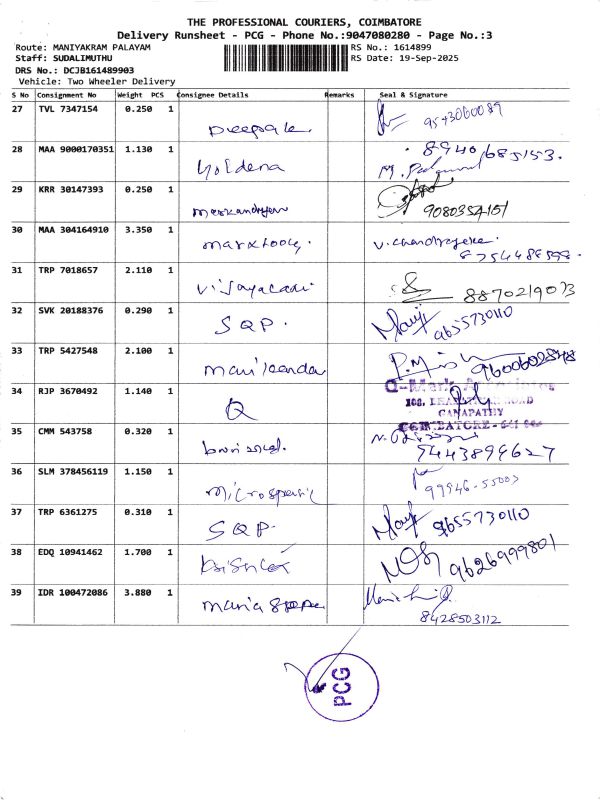 THE PROFESSIONAL COURIERS, COIMBATORE
Delivery Runsheet - PCG - Phone No.:9047080280 - Page No.:3
Route: MANIYAKRAM PALAYAM RS No.: 1614899
Staff: SUDALIMUTHU RS Date: 19-Sep-2025
DRS No.: DCJB161489903
Vehicle: Two Wheeler Delivery
S No Consignment No Weight PCS Consignee Details Remarks Seal & Signature
27 TVL 7347154 0.250 1
9543060089
28 MAA 9000170351 1.130 1
8940685153.
29 KRR 30147393 0.250 1
9080354151
30 MAA 304164910 3.350 1
v. chandrasekar
31 TRP 7018657 2.110 1
8870219073
32 SVK 20188376 0.290 1
SQP.
9655730110
33 TRP 5427548 2.100 1
34 RJP 3670492 1.140 1
Q
GANAPATHY
35 CMM 543758 0.320 1
9443899627
36 SLM 378456119 1.150 1
99946-55003
37 TRP 6361275 0.310 1
SQP. 9655730110
38 EDQ 10941462 1.700 1
9626999801
39 IDR 100472086 3.880 1
8428503112
PCG